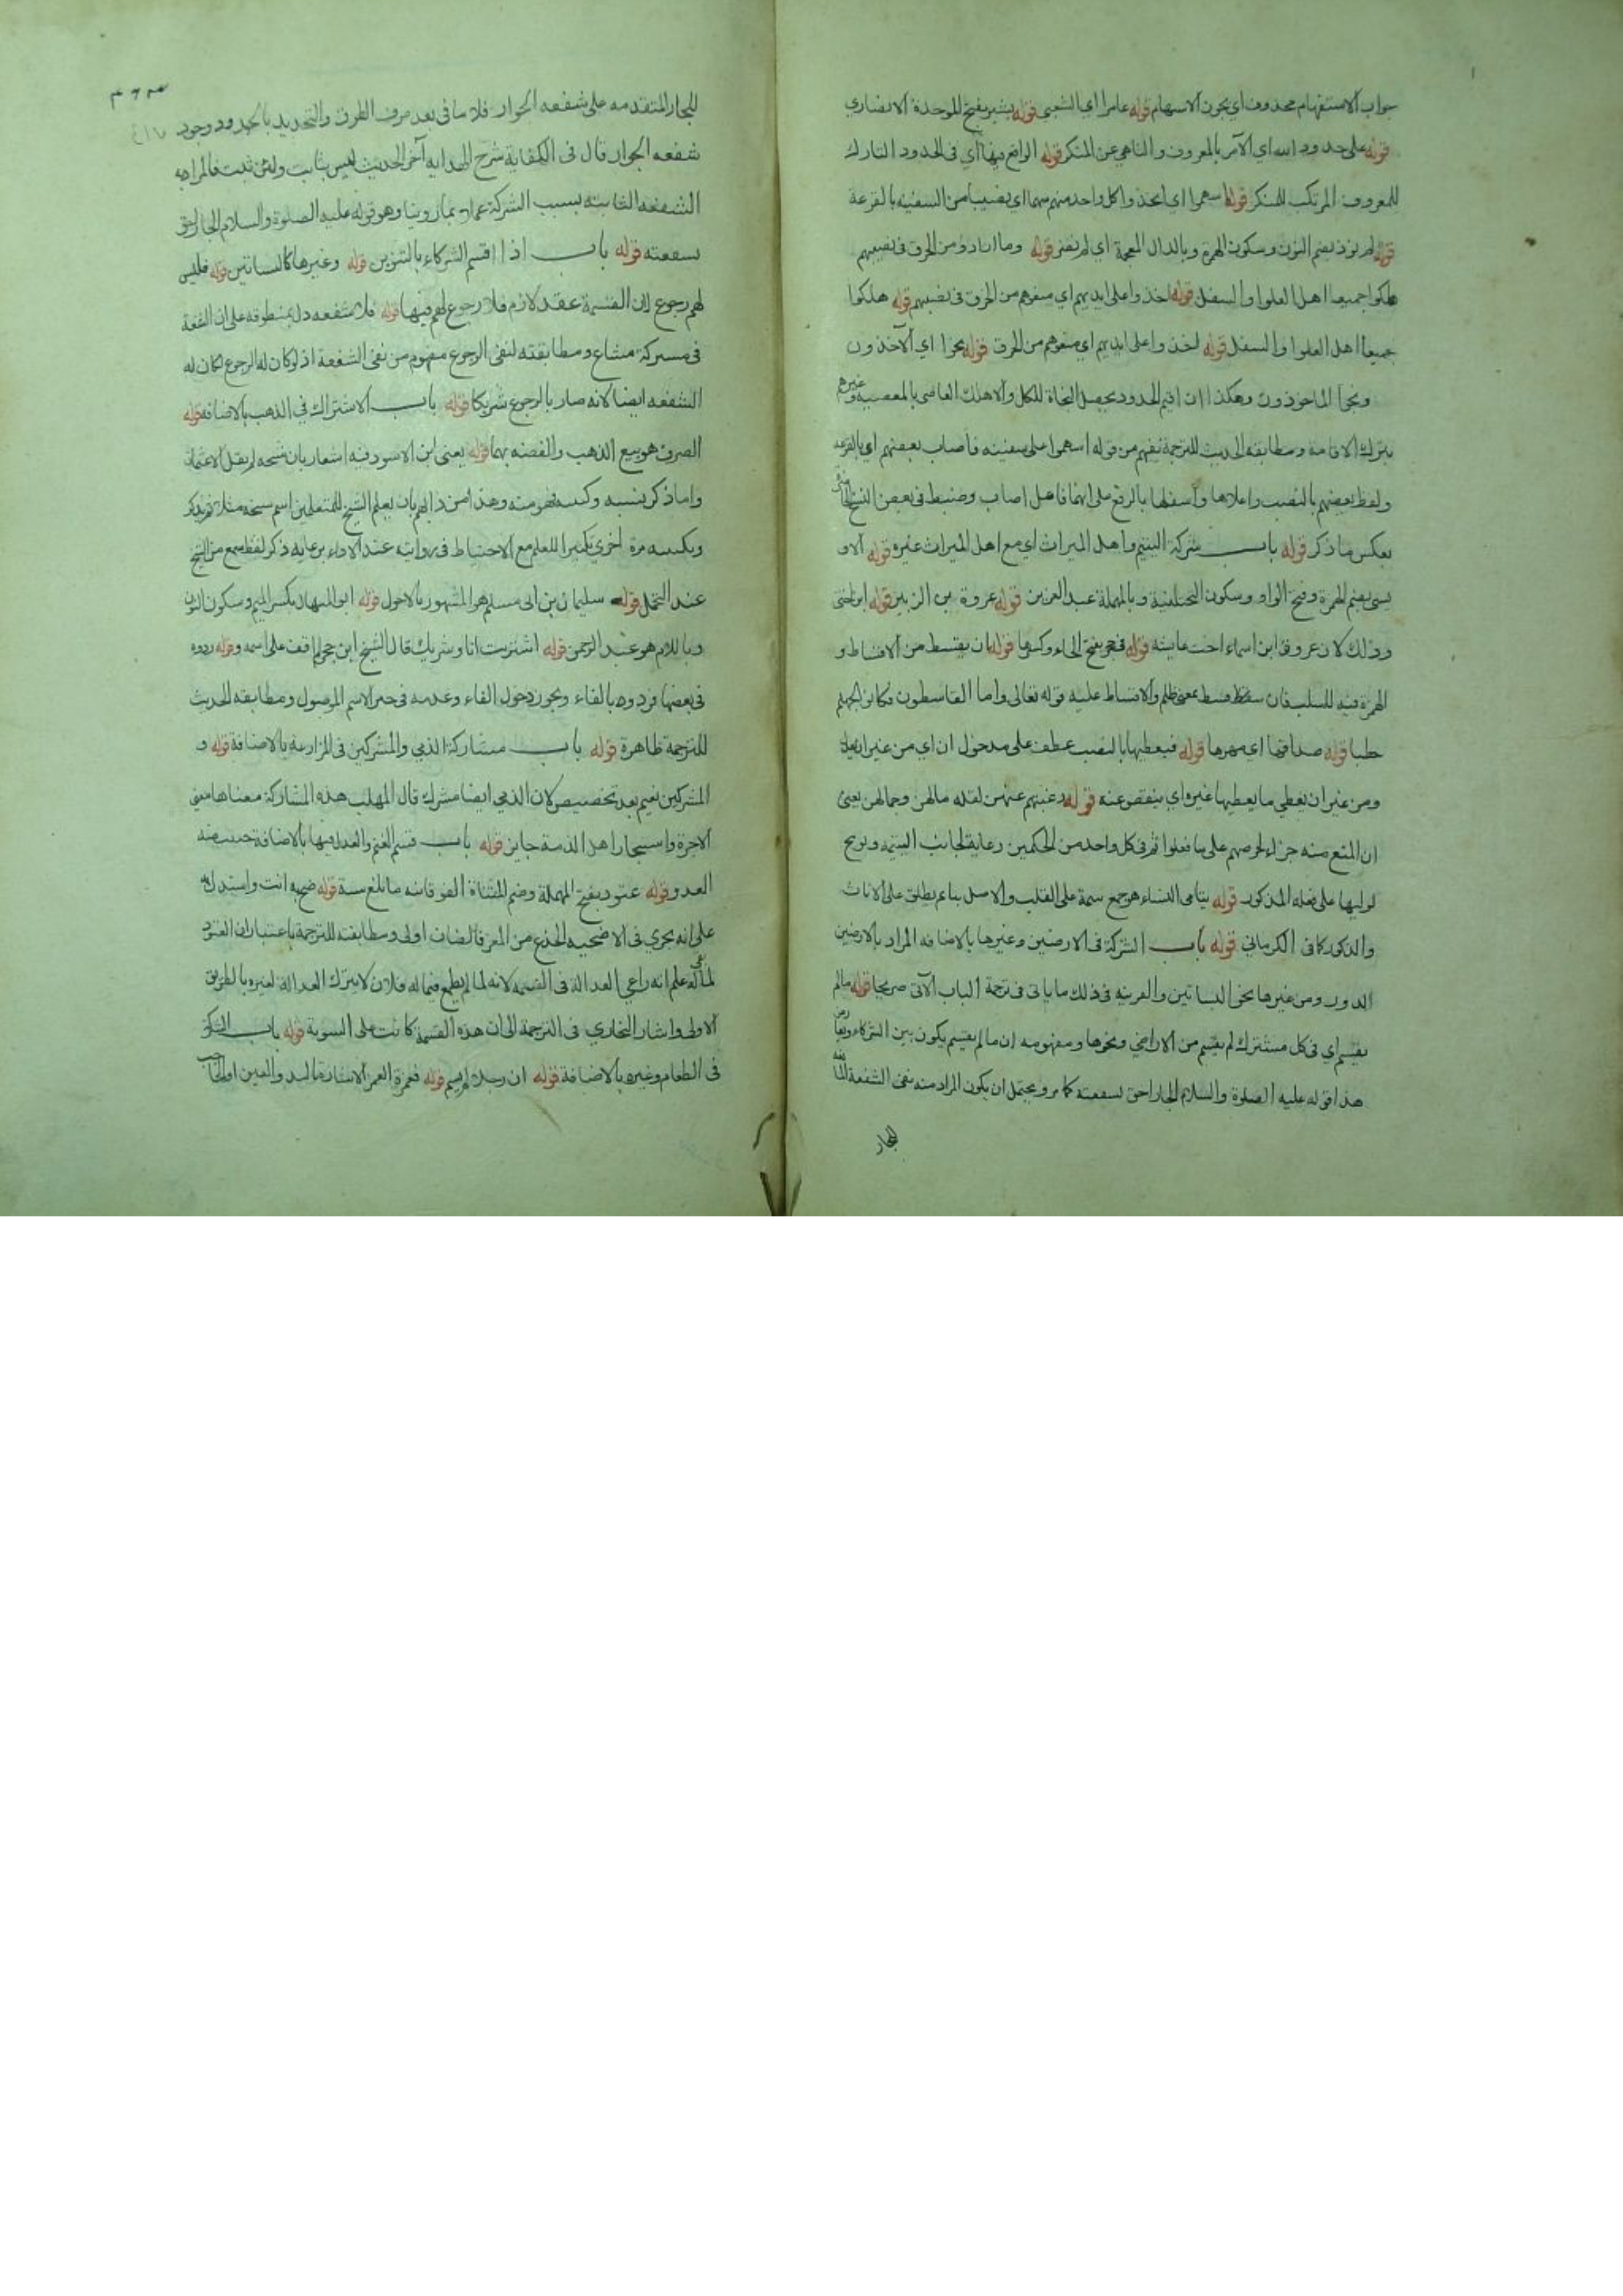 جواب الاستفهام محذوف اي يجوز الاستهام قوله عامرا اي الشعبي قوله بشير بفتح الموحدة الانصاري
قوله على حدود الله اي الآمر بالمعروف والناهي عن المنكر قوله الواقع فيها اي في الحدود التارك
للمعروف المرتكب للمنكر قوله استهموا اي اتخذ واكل واحد منهم سهما اي نصيبا من السفينه بالقرعة
قوله لم نوذ بضم النون وسكون الهمزة وبالذال المعجمة اي لم نضر قوله وما ارادو من الخرق في نصيبهم
هلكوا جميعا اهل العلو او السفل قوله اخذوا على ايديهم اي منعوهم من الخرق في نصيبهم قوله هلكوا
جميعا اهل العلو او السفل قوله اخذوا على ايديهم اي منعوهم من الخرق قوله نجوا اي الآخذون
ونجوا الماخوذون وهكذا ان اقيم الحدود يحصل النجاة للكل والا هلك العاصي بالمعصية وغيرهم
بترك الاقامة ومطابقة الحديث للترجمة تفهم من قوله استهموا على سفينه فاصاب بعضهم اي بالقرعة
ولفظ بعضهم بالنصب واعلاها واسفلها بالرفع على انها فاعل اصاب وضبط في بعض النسخ
بعكس ما ذكر قوله باب شركة اليتيم واهل الميراث اي مع اهل الميراث غيره قوله الاو
يسي بضم الهمزة وفتح الواو وسكون التحتانية وبالمهملة عبد العزيز قوله عروة بن الزبير قوله ابن اختي
وذلك لان عروة ابن اسماء اخت عايشه قوله في حجر بفتح الحاء وكسرها قوله ان يقسط من الاقساط و
الهمزة فيه للسلب فان قسط بمعنى ظلم والاقساط عليه قوله تعالى واما القاسطون فكانوا لجهنم
حطبا قوله صداقها اي مهرها قوله فيعطيها بالنصب عطف على مدخول ان اي من غير ان يعدل
ومن غير ان يعطي ما يعطيها غيره اي ينقص عنه قوله رغبتهم عنهن لقلة مالهن وجمالهن يعني
ان المنع منه جزاء لحرصهم على ما فعلوا ثم في كل واحد من الحكمين رعاية لجانب اليتيمه وتوبيخ
لوليها على فعله المذكور قوله يتامى النساء هو جمع يتيمة على القلب والاصل يتائم يطلق على الاناث
والذكور كما في الكرماني قوله باب الشركة في الارضين وغيرها بالاضافه المراد بالارضين
الدور ومن غيرها نحو البساتين والقرينه في ذلك ما ياتي في ترجمة الباب الآتي صريحا قوله ما لم
يقسم اي في كل مشترك لم يقسم من الاراضي ونحوها ومفهومه ان ما لم يقسم يكون بين الشركاء
هذا قوله عليه الصلوة والسلام الجار احق بسقعته كما مر ويحتمل ان يكون المراد منه نفي الشفعة
للجار
للجار المتقدمة على شفعه الجوار فلا منافى بعد صرف الطرق والتحديد بالحدود وجود
شفعه الجوار قال في الكفاية شرح الهدايه آخر الحديث ليس بثابت ولئن ثبت فالمراد به
الشفعه الثابته بسبب الشركة عملا بما روينا وهو قوله عليه الصلوة والسلام الجار احق
بسقعته قوله باب اذا اقسم الشركاء بالتنوين قوله وغيرها كالبساتين قوله فليس
لهم رجوع لان القسمة عقد لازم فلا رجوع لهم فيها قوله فلا شفعه دل بمنطوقه على ان الشفعة
في مشتركة مشاع ومطابقته لنفي الرجوع مفهوم من نفي الشفعة اذ لو كان له الرجوع لكان له
الشفعه ايضا لانه صار بالرجوع شريكا قوله باب الاشتراك في الذهب بالاضافة قوله
الصرف هو بيع الذهب والفضه بهما قوله يعني ابن الاسود فيه اشعار بان شيخه لم يقل الاعثمان
واما ذكر نسبه وكنيته فهو منه وهذا من دابهم بان يعلم الشيخ للمتعلمين اسم شيخه مثلا ثم يذكر
وبكنيته مرة اخرى تكثيرا للعلم مع الاحتياط في رواته عند الاداء برعاية ذكر لفظ سمع من الشيخ
عند التحمل قوله سليمان بن ابي مسلم هو المشهور بالاحول قوله ابو المنهال بكسر الميم وسكون النون
وباللام هو عبد الرحمن قوله اشتريت انا وشريك قال الشيخ ابن حجر لم اقف على اسمه وقوله ردوه
في بعضها فردوه بالفاء ويجوز دخول الفاء وعدمه في خبر الاسم الموصول ومطابقه الحديث
للترجمة ظاهرة قوله باب مشاركة الذمي والمشركين في المزارعة بالاضافة قوله و
المشركين تعميم بعد تخصيص لان الذمي ايضا مشرك قال المهلب هذه المشاركة معناها معنى
الاجرة واستيجار اهل الذمة جايز قوله باب قسم الغنم والعدل فيها بالاضافة
العدو قوله عتود بفتح المهملة وضم المثناة الفوقانيه ما بلغ سنة قوله ضح به انت واستدل به
على انه يجزي في الاضحيه الجذع من المعز فالضان اولى ومطابقته للترجمة باعتبار ان العتود
لما علم انه راعي العدالة في القسمة لانه لما لم يطمع فيما له فلان لا يترك العدالة لغيره بالطريق
الاولى واشار البخاري في الترجمة الى ان هذه القسمة كانت على السوية قوله باب الشركة
في الطعام وغيره بالاضافة قوله ان رجلا لم يسم قوله فغمزه الغمز الاشارة باليد والعين او الحاجب